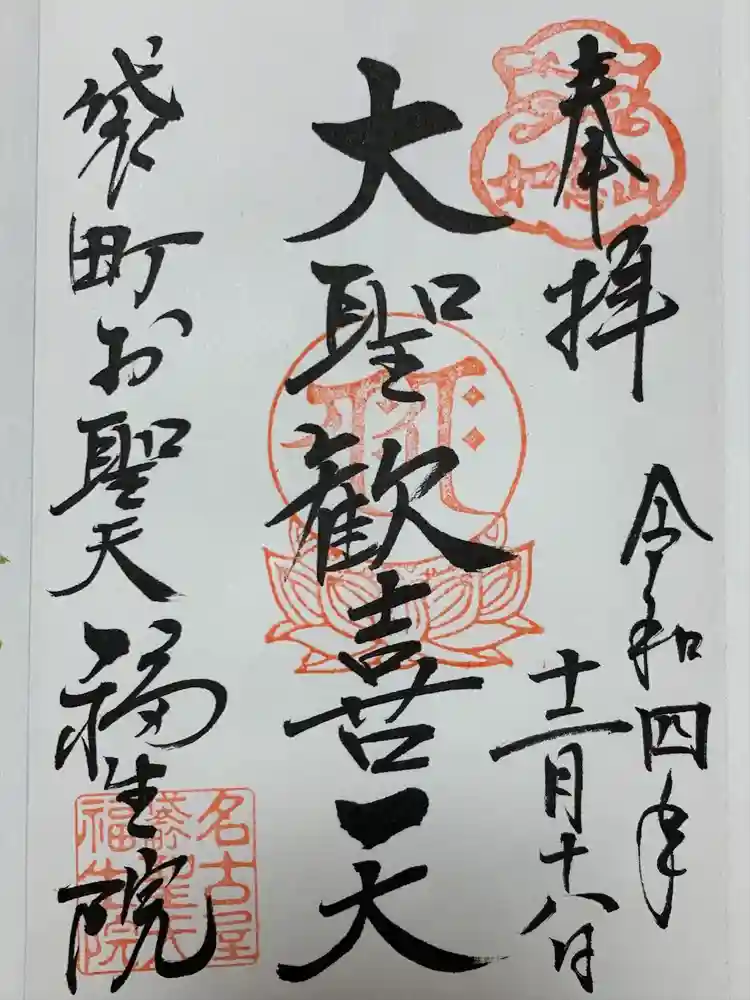 奉拝
令和四年
十二月十八日
大聖歓喜天
袋町お聖天
福生院
如意山
名古屋
袋町聖天
福生院